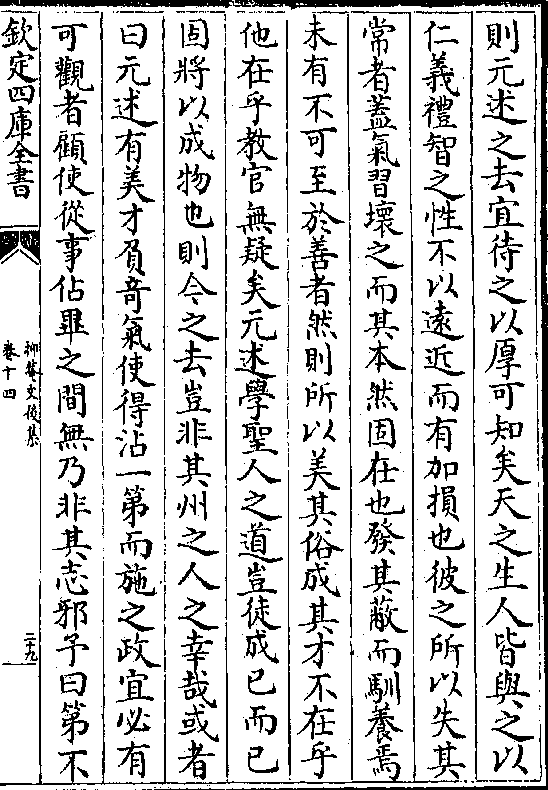 則元述之去宜待之以厚可知矣天之生人皆與之以
仁義禮智之性不以遠近而有加損也彼之所以失其
常者蓋氣習壞之而其本然固在也發其蔽而馴養焉
未有不可至於善者然則所以美其俗成其才不在乎
他在乎教官無疑矣元述學聖人之道豈徒成已而已
固將以成物也則今之去豈非其州之人之幸哉或者
曰元述有美才負竒氣使得沾一第而施之政宜必有
可觀者顧使從事佔畢之間無乃非其志邪予曰第不
欽定四庫全書
抑菴文後集
卷十四
二十九